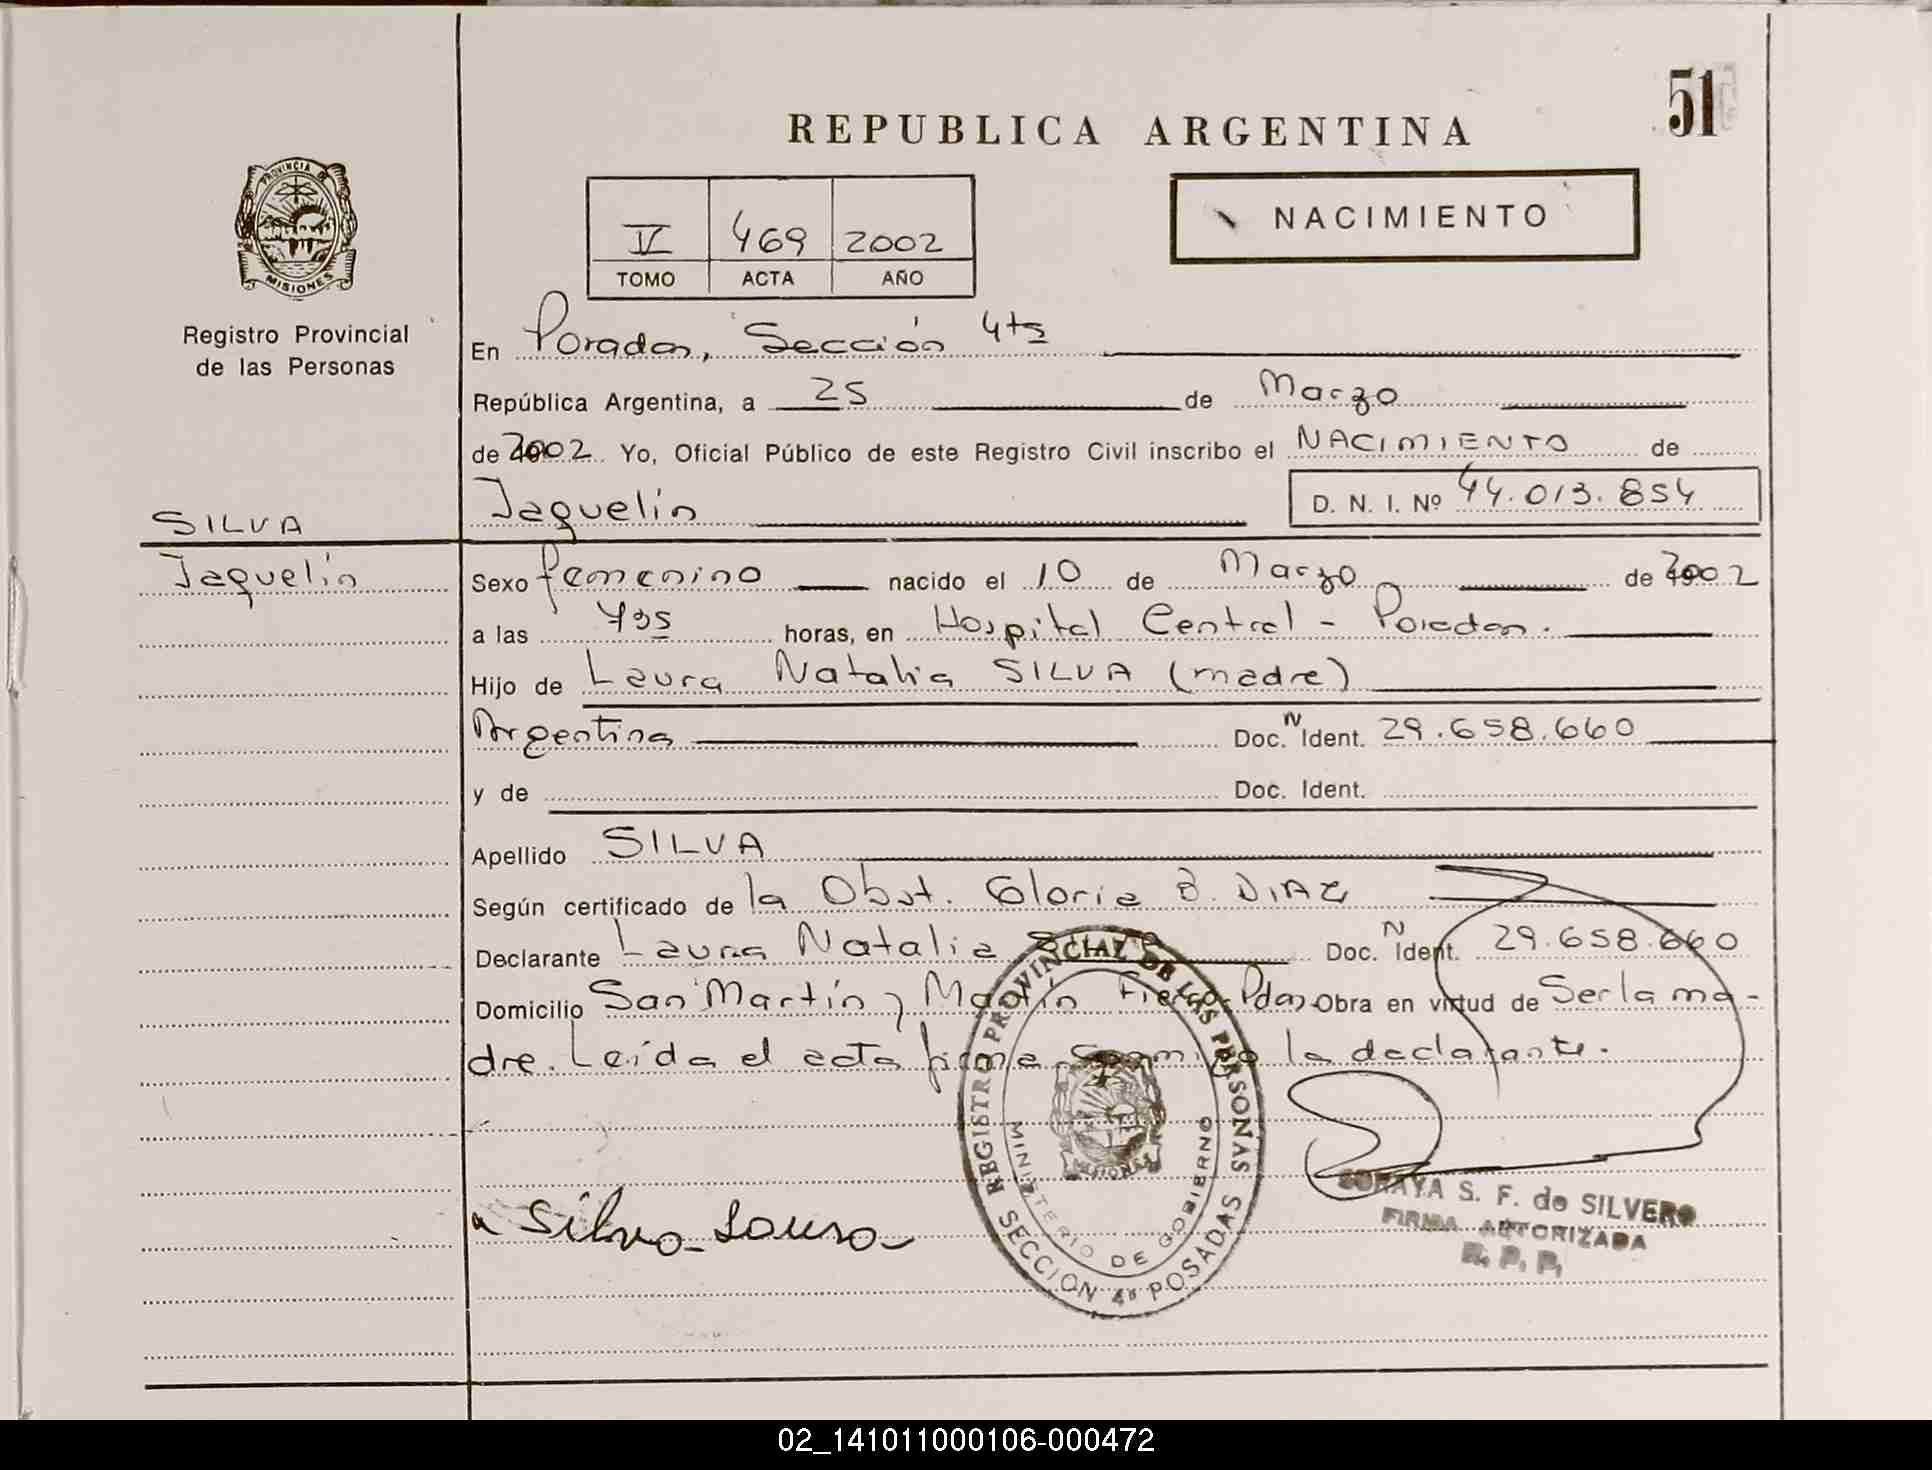 51
REPUBLICA ARGENTINA
PROVINCIA DE
MISIONES
IV 469 2002
TOMO ACTA AÑO
NACIMIENTO
Registro Provincial
de las Personas
En Posadas, Sección 4ta
República Argentina, a 25 de Marzo
de 2002 Yo, Oficial Público de este Registro Civil inscribo el NACIMIENTO de
SILVA
Jaquelin D. N. I. Nº 44.013.854
Jaquelin
Sexo femenino nacido el 10 de Marzo de 2002
a las horas, en Hospital Central - Posadas.
Hijo de Laura Natalia SILVA (madre)
Argentina Doc. N Ident. 29.658.660
y de Doc. Ident.
Apellido SILVA
Según certificado de la Obst. Gloria B. DIAZ
Declarante Laura Natalia Doc. N Ident. 29.658.660
Domicilio San Martín y Martín Fierro Pdas Obra en virtud de Ser la ma-
dre. Leída el acta firma conmigo la declarante.
Silva Laura
REGISTRO PROVINCIAL DE LAS PERSONAS
MINISTERIO DE GOBIERNO
MISIONES
SECCION 4ª POSADAS
SORAYA S. F. de SILVERO
FIRMA AUTORIZADA
R. P. P.
02_141011000106-000472